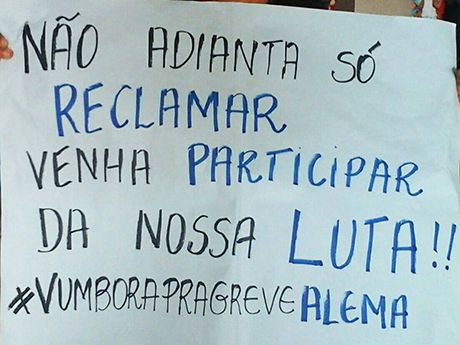 NÃO ADIANTA SÓ
RECLAMAR
VENHA PARTICIPAR
DA NOSSA LUTA!!
#VUMBORAPRAGREVEALEMA